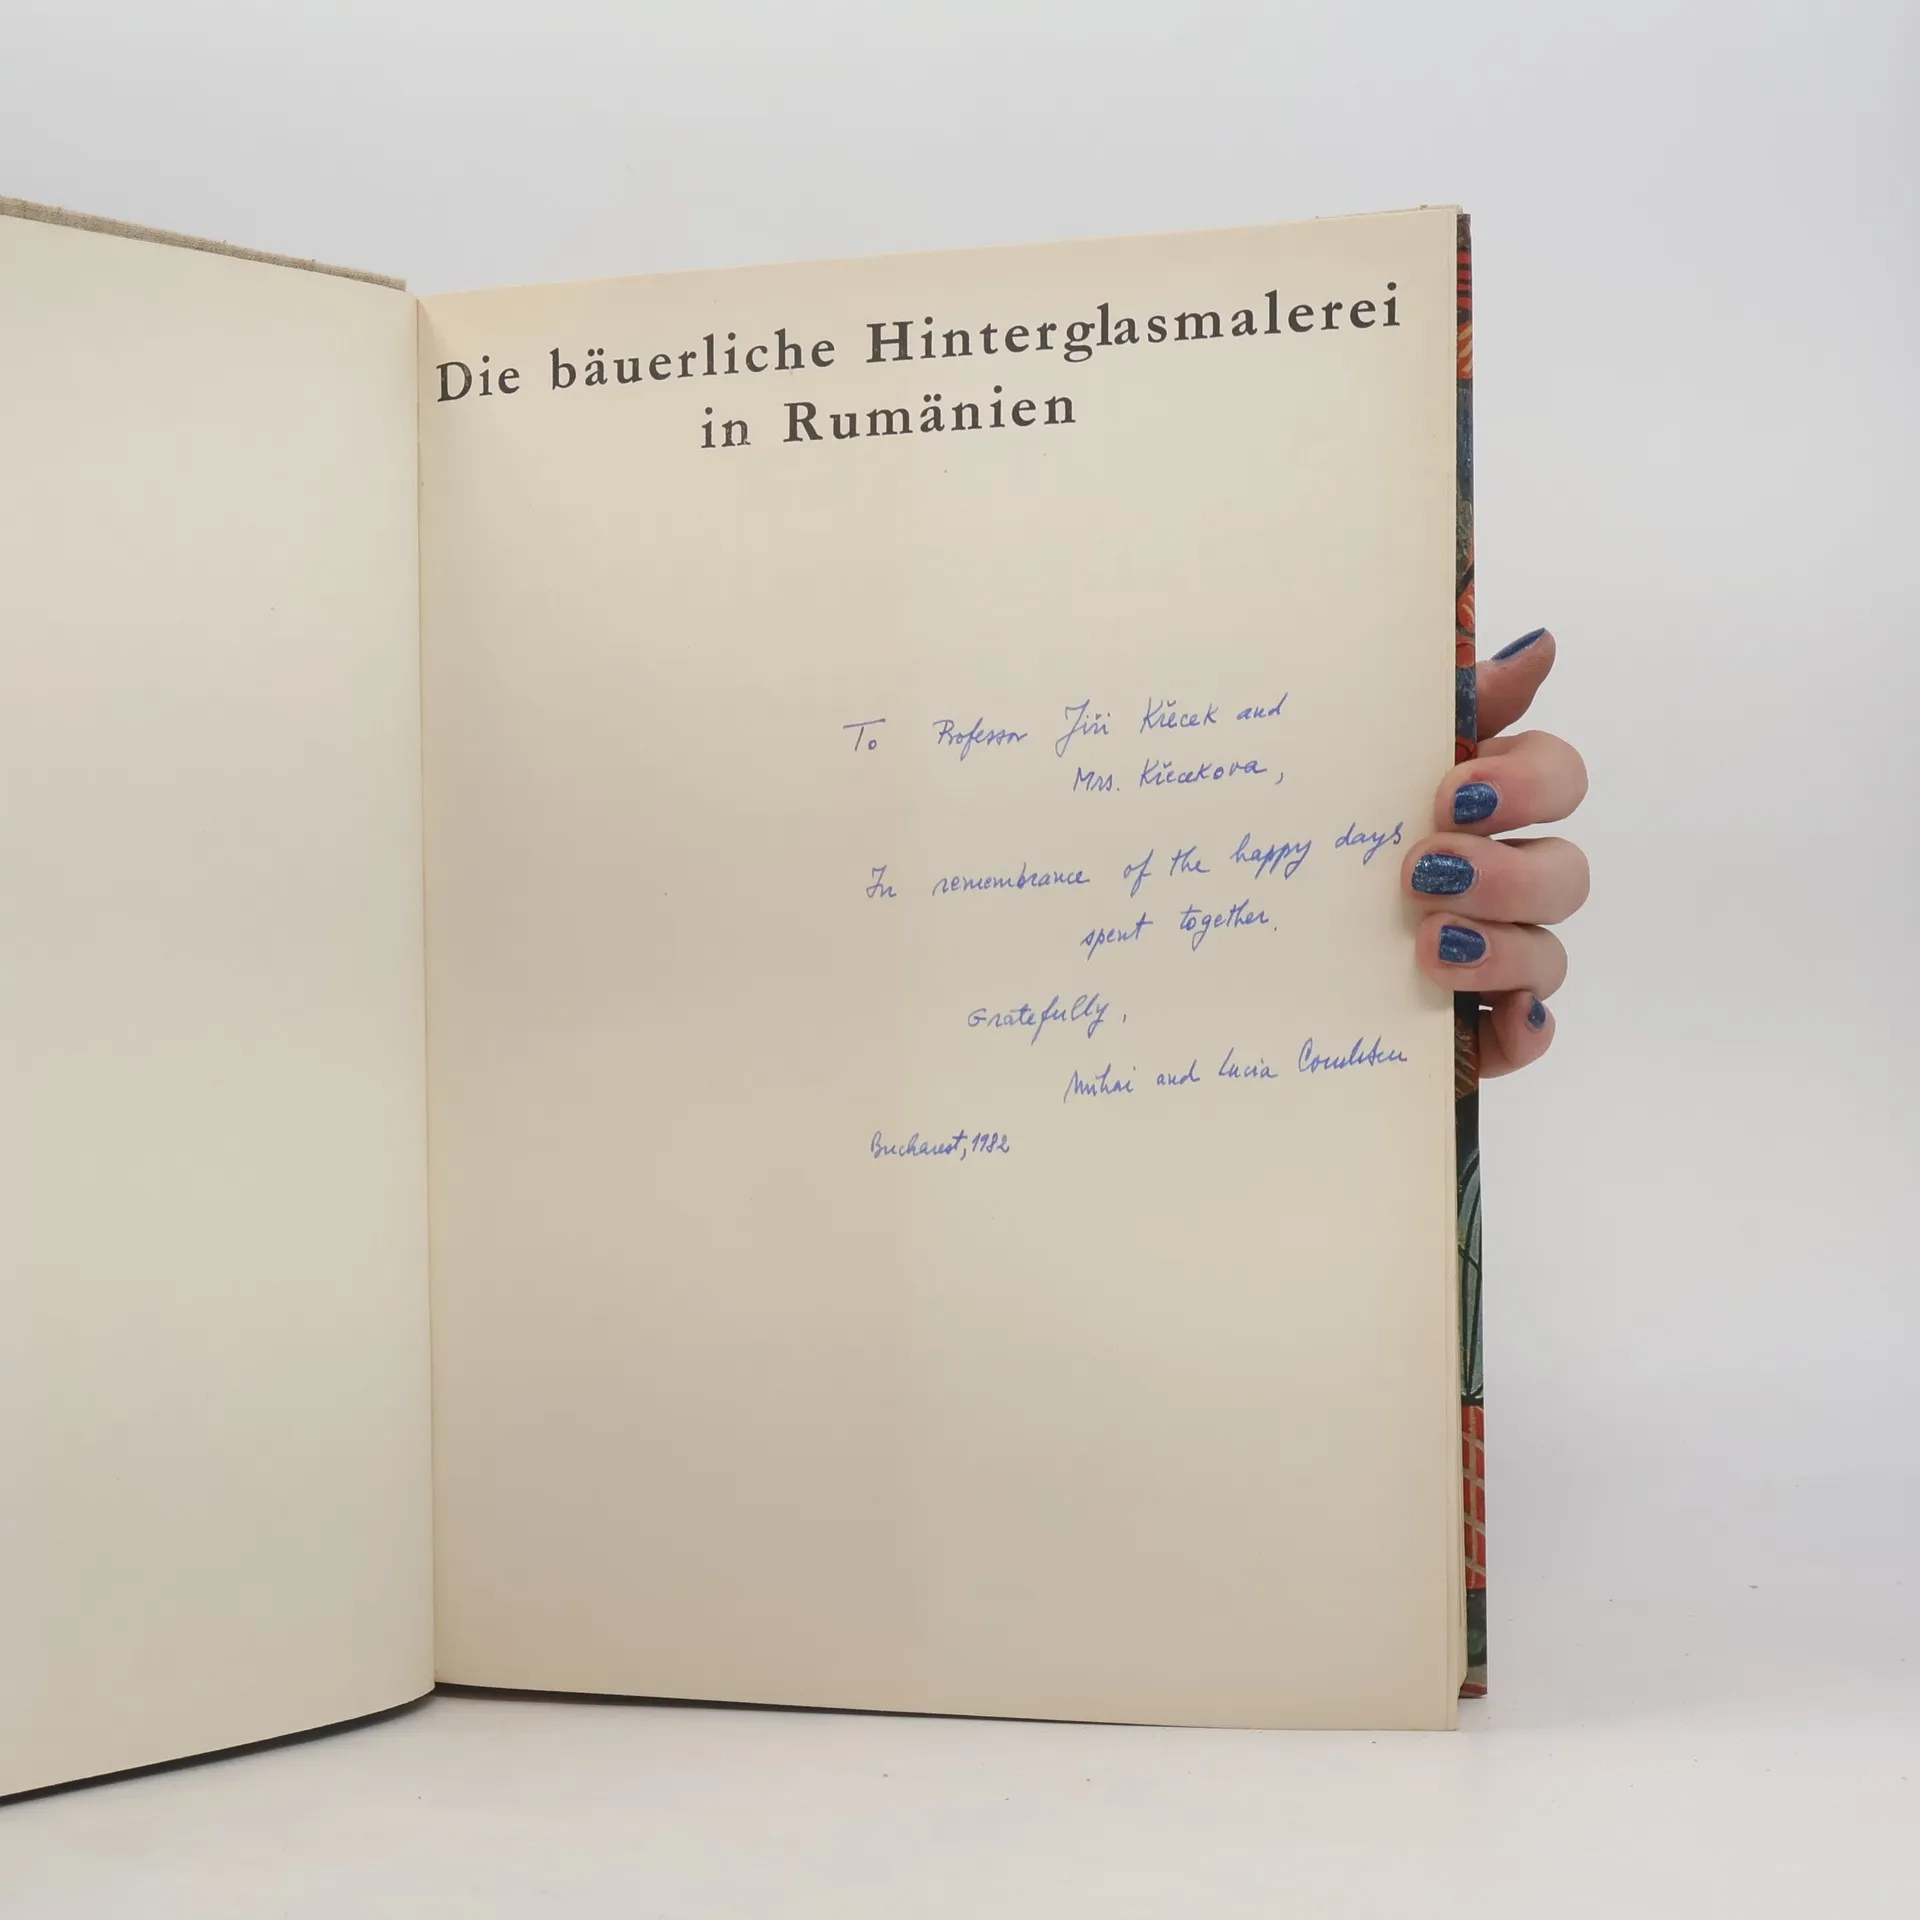 Die bäuerliche Hinterglasmalerei
in Rumänien
To Professor Jiří Křecek and
Mrs. Křecekova,
In remembrance of the happy days
spent together.
Gratefully,
Mihai and Lucia
Bucharest, 1982